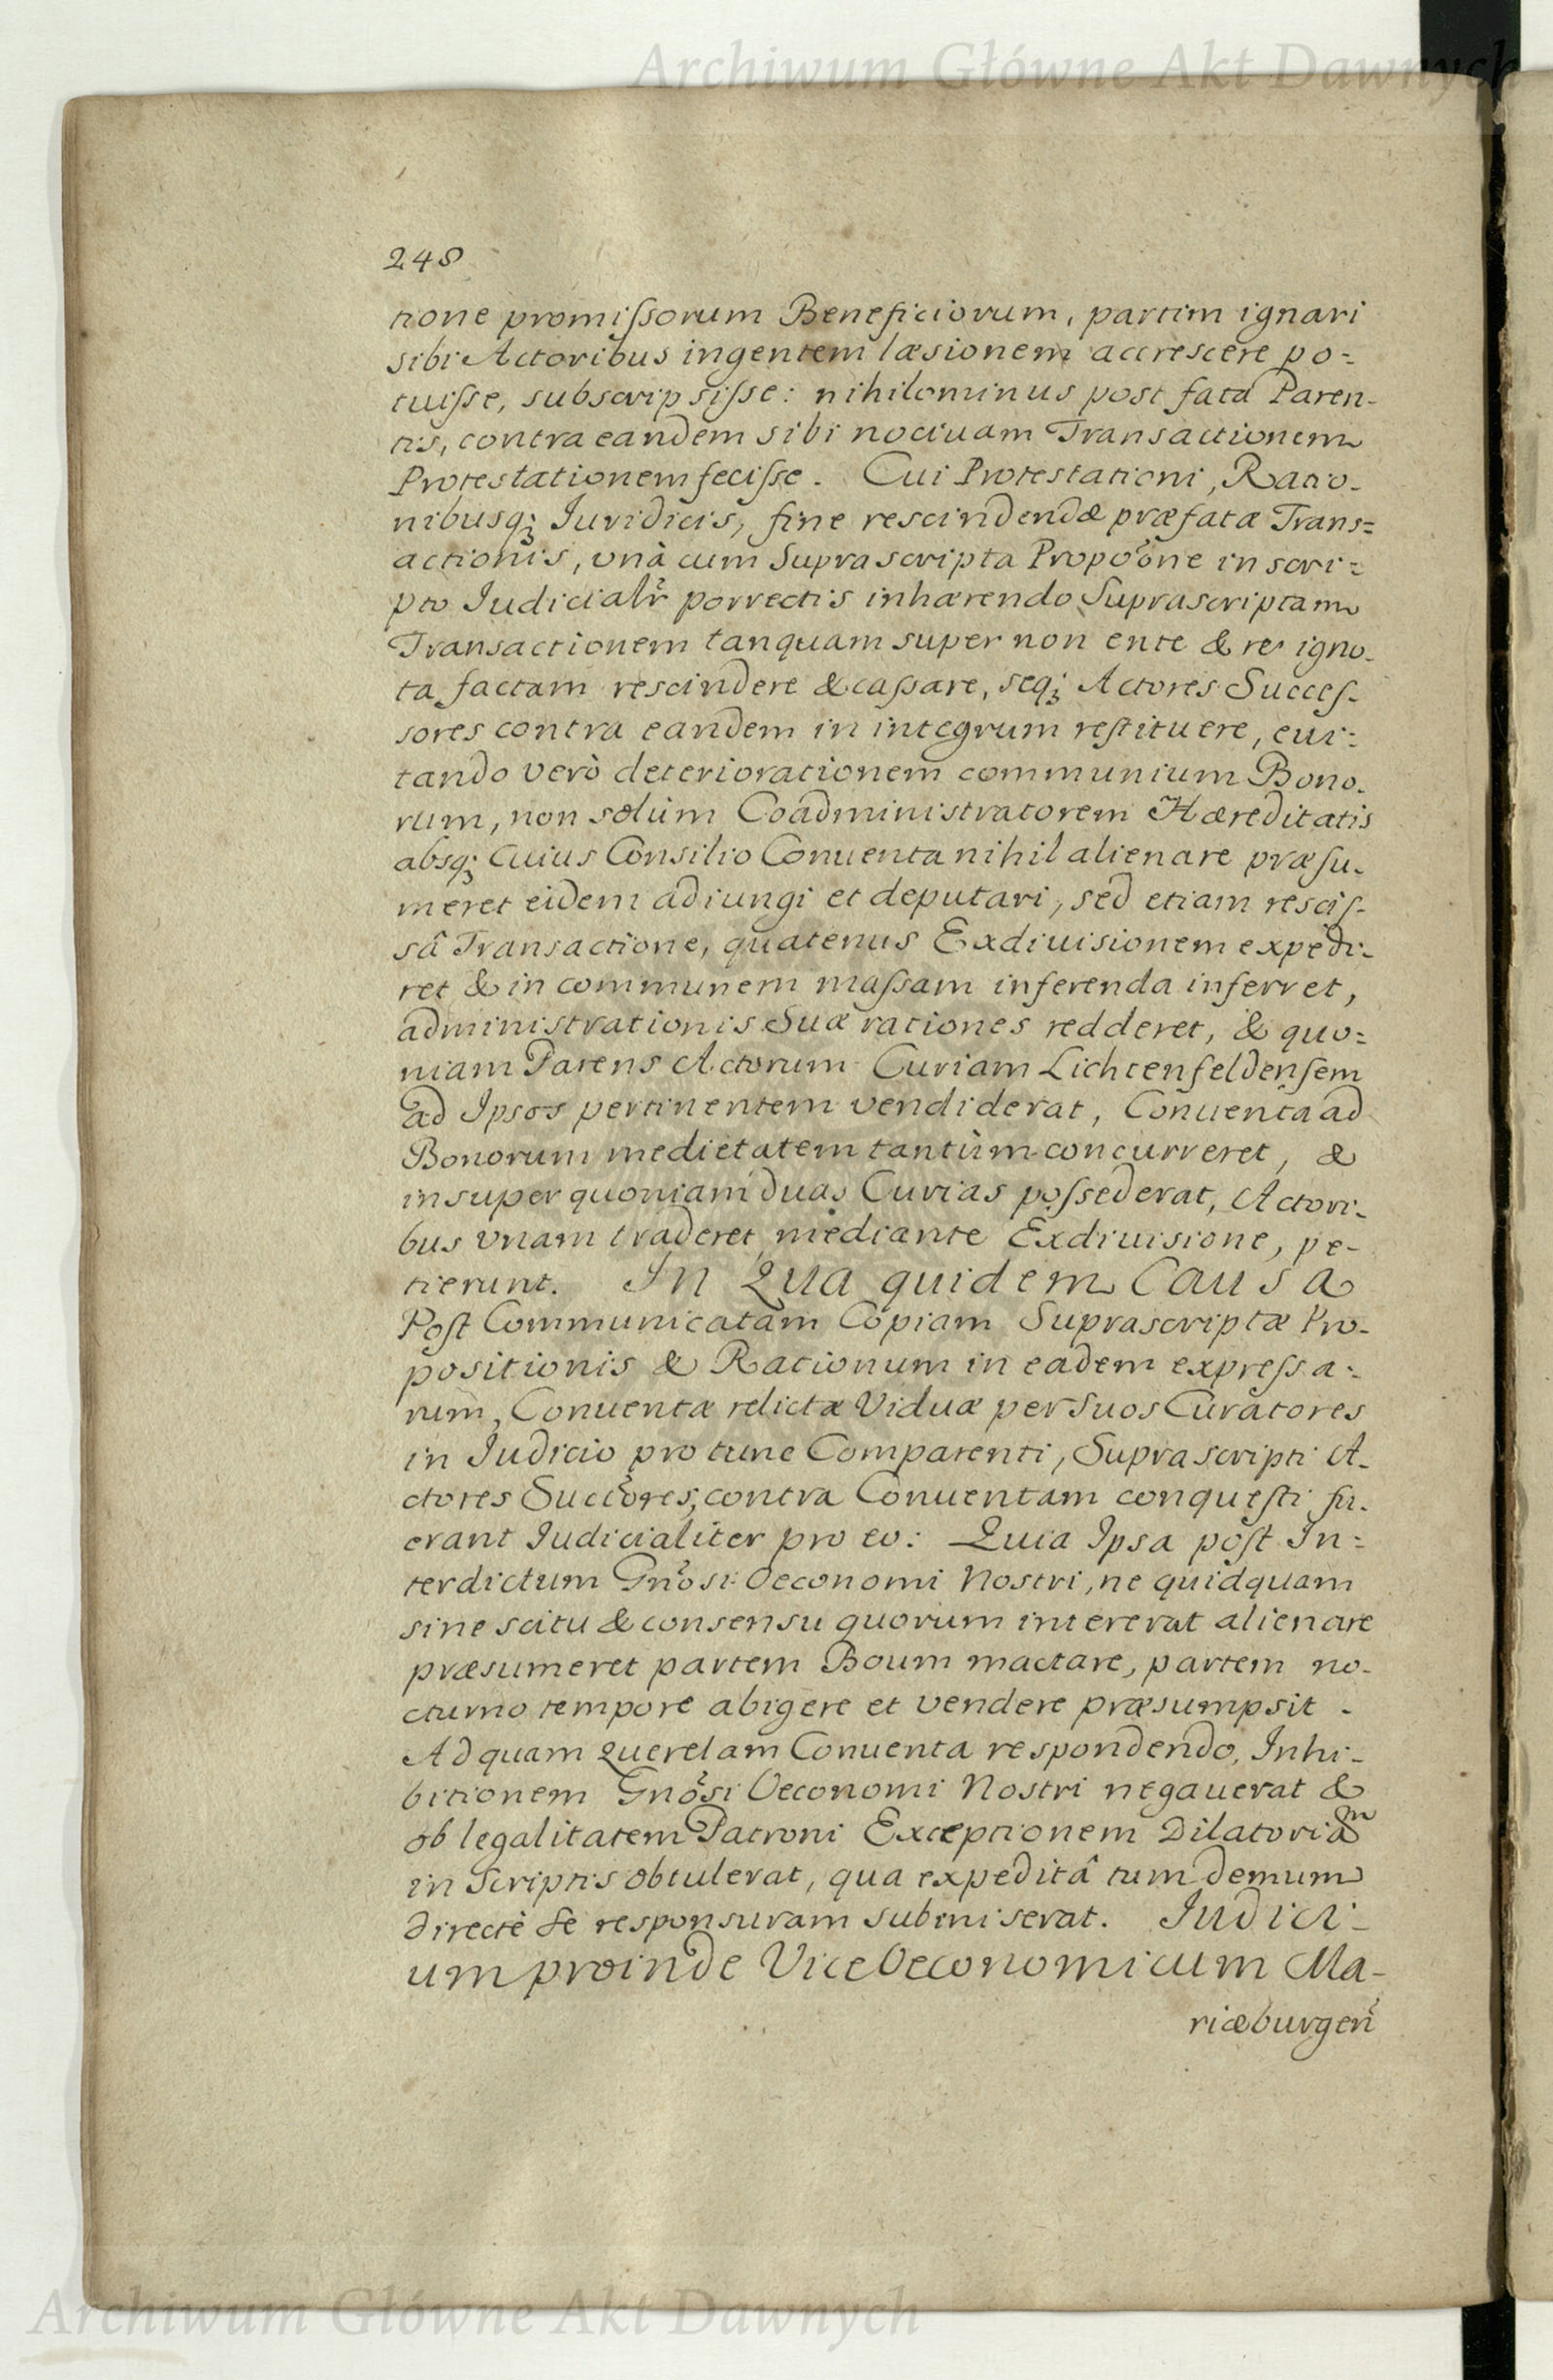 Archiwum Główne Akt Dawnych
248
tione promiſsorum Beneficiorum, partim ignari
sibi Actoribus ingentem læsionem accrescere po=
tuiſse, subscripsiſse: nihilominus post fata Paren-
tis, contra eandem sibi nociuam Transactionem
Protestationem feciſse. Cui Protestationi, Ratio-
nibusq; Iuridicis, fine rescindendæ præfatæ Trans=
actionis, vnà cum Suprascripta Propoõne in scri=
pto Judicialr̃ porrectis inhærendo Suprascriptam
Transactionem tanquam super non ente & re igno-
ta factam rescindere & caſsare, seq; Actores Succeſ-
sores contra eandem in integrum reſtituere, eui=
tando verò deteriorationem communium Bono-
rum, non solùm Coadministratorem Hæreditatis
absq; cuius Consilio Conuenta nihil alienare præſu-
meret eidem adiungi et deputari, sed etiam resciſ-
sâ Transactione, quatenus Exdiuisionem expedi-
ret & in communem maſsam inferenda inferret,
administrationis Suæ rationes redderet, & quo=
niam Parens Actorum Curiam Lichtenfeldenſem
ad Ipsos pertinentem vendiderat, Conuenta ad
Bonorum medietatem tantùm concurreret, &
insuper quoniam duas Curias poſsederat, Actori-
bus vnam traderet mediante Exdiuisione, pe-
tierunt. In Qua quidem Causa
Poſt Communicatam Copiam Suprascriptæ Pro-
positionis & Rationum in eadem expreſsa=
rum, Conuentæ relictæ Viduæ per Suos Curatores
in Judicio pro tunc Comparenti, Suprascripti A-
ctores Succõres, contra Conuentam conqueſti fu-
erant Iudicialiter pro eo: Quia Ipsa poſt In=
terdictum Gnõsi Oeconomi Nostri, ne quidquam
sine scitu & consensu quorum intererat alienare
præsumeret partem Boum mactare, partem no-
cturno tempore abigere et vendere præsumpsit.
Ad quam Querelam Conuenta respondendo, Inhi-
bitionem Gnõsi Oeconomi Nostri negauerat &
ob legalitatem Patroni Exceptionem Dilatoriam
in Scriptis obtulerat, qua expeditâ tum demum
directè se responsuram submiserat. Judici-
um proinde ViceOeconomicum Ma-
riæburgeñ
Archiwum Główne Akt Dawnych